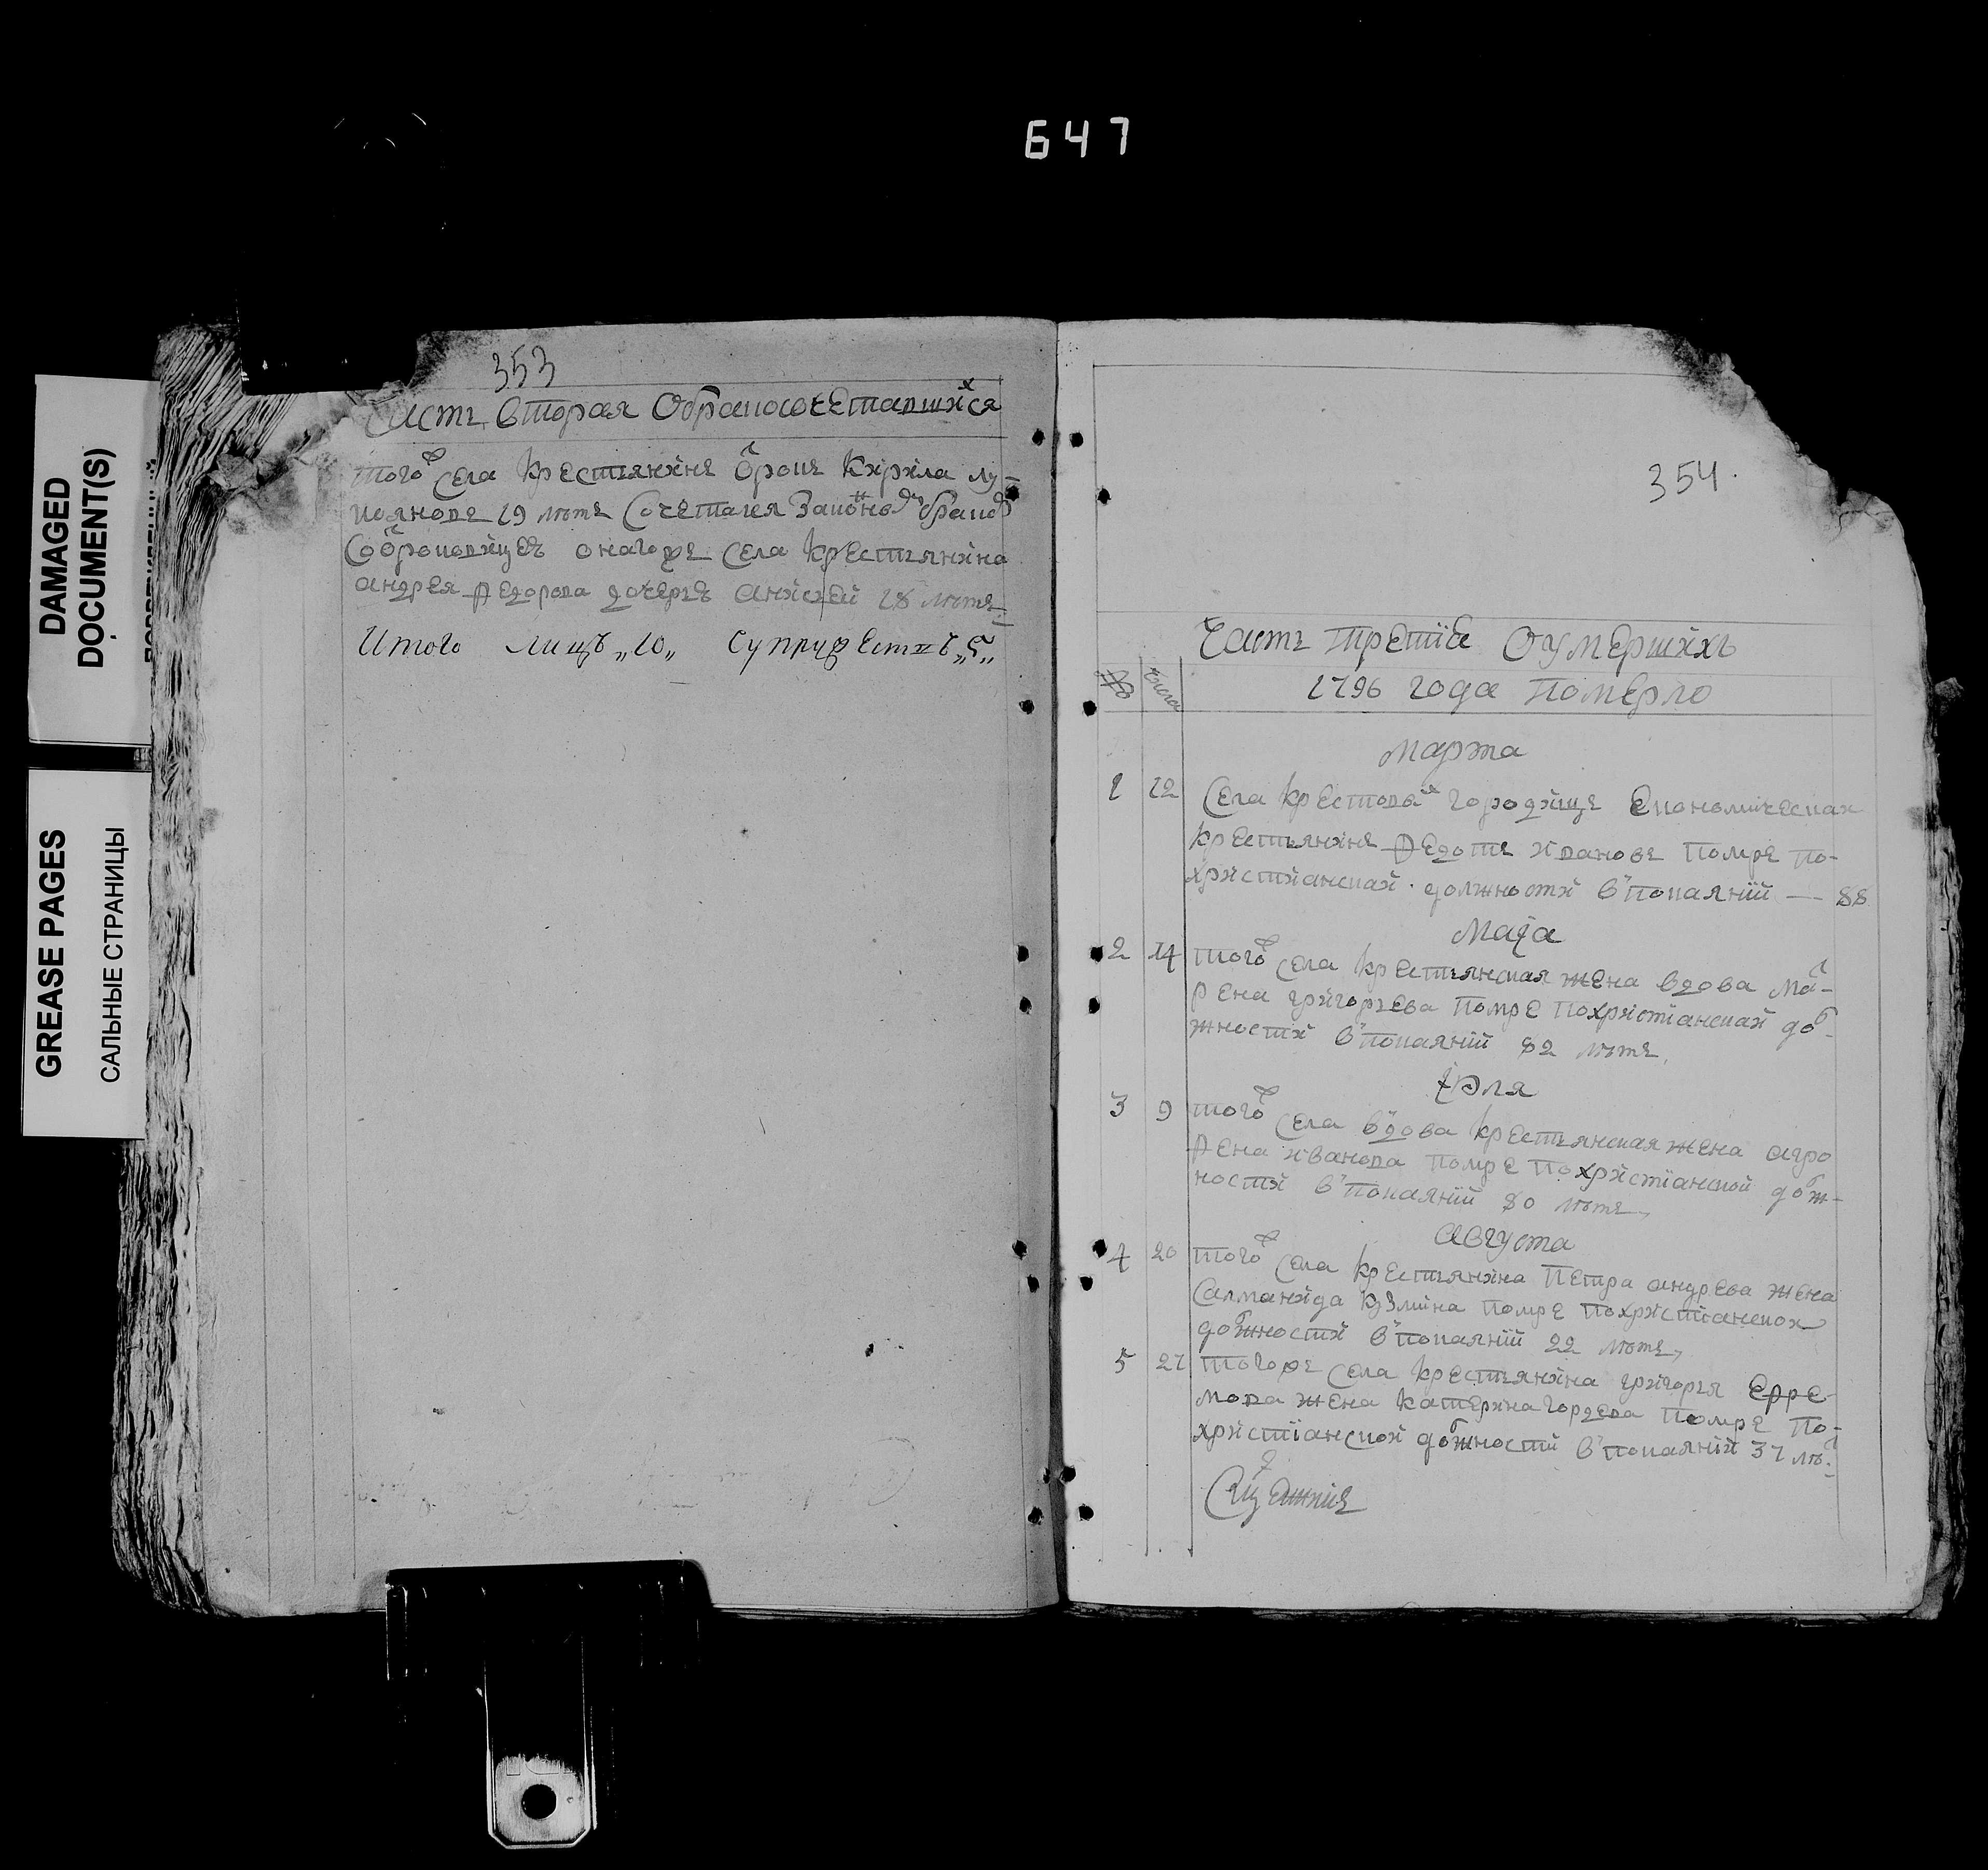 647
DAMAGED
DOCUMENT(S)
GREASE PAGES
САЛЬНЫЕ СТРАНИЦЫ
353
Часть вторая Обракосочетавшихся
тогоже села крестьянинъ отрокъ Кирила лу-
кояновъ 19 лѣтъ Сочетался Законнымъ бракомъ
Сотроковицеъ оногоже села крестьянина
андрея Федорова дочеръъ 18 лѣтъ
Итого лицъ „10„ Супружествъ „5„
354.
Часть третїа Оумершихъ
1796 года померло
числа
марта
1 12 Села крестовых городищъ Економическаи
крестьянинъ Федотъ ивановъ помре по-
христианскай должности в покаянїй — 88
Маїа
2 14 тогож села крестьянская жена вдова Ма-
рена григорьева помре похристїанскаи дол-
жности в покаянїй 82 лѣтъ,
їюля
3 9 тогож села вдова крестьянская жена агро
Фена иванова помре похристїанской долж-
ности в покаянїй 80 лѣтъ,
Августа
4 20 тогож села крестьянина Петра андрева жена
Салманида кузмина помре похристїанскои
должности в покаянїй 22 лѣтъ,
5 27 тогоже села крестьянина григорья Ефре-
мова жена катерина гордева помре по-
христїанской должности в покаянїй 37 лѣт: